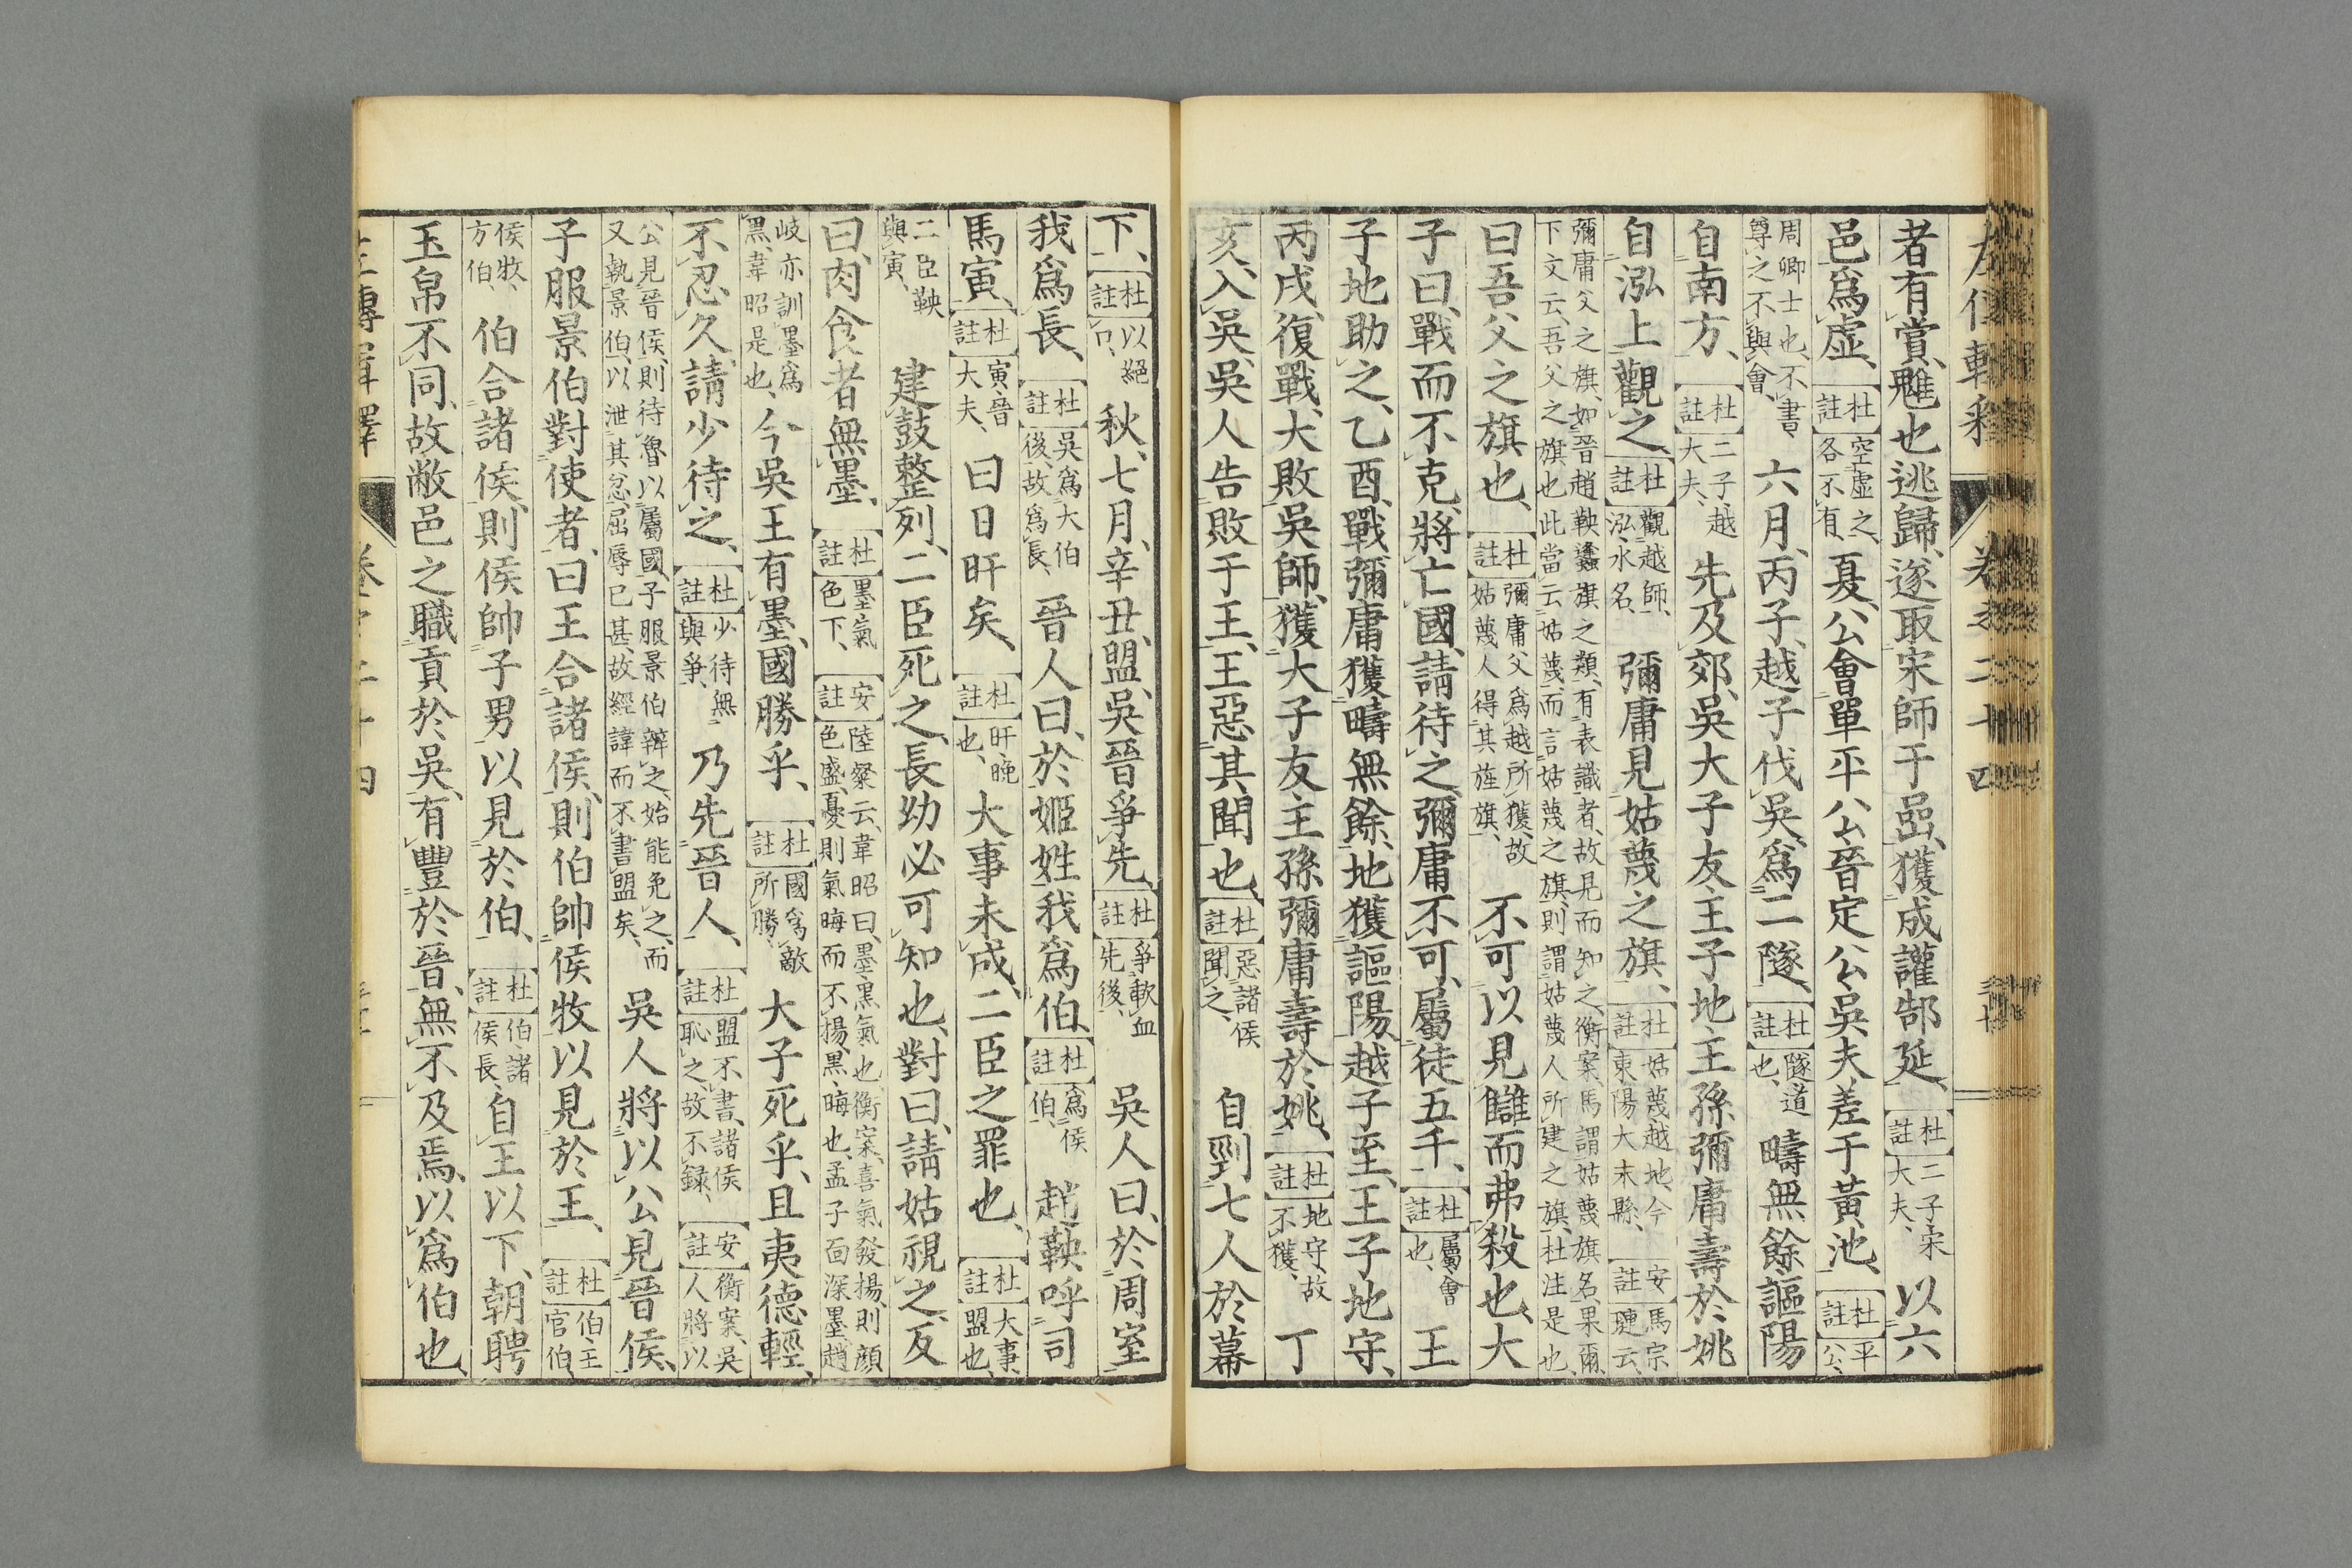 者有賞、魋也逃歸、遂取宋師于嵒、獲成讙郜延、杜註二子宋大夫、以六
邑爲虛、杜註空虛之各不有、夏、公會單平公、晉定公、吳夫差于黃池、杜註平公、
周卿士也、不書、尊之不與會六月、丙子、越子伐吳、爲二隧、杜註隧道也、疇無餘謳陽
自南方、杜註二子越大夫、先及郊、吳大子友、王子地、王孫彌庸、壽於姚
自泓上觀之、杜註觀越師、泓水名、彌庸見姑蔑之旗、杜註姑蔑越地、今東陽大末縣、安註馬宗璉云、
彌庸父之旗、如晉趙鞅蠭旗之類、有表識者、故見而知之、衡案、馬謂姑蔑旗名、果爾、下文云吾父之旗也、此當云姑蔑、而言姑蔑之旗、則謂姑蔑人所建之旗、杜注是也、
曰吾父之旗也、杜註彌庸父爲越所獲、故姑蔑人得其旌旗、不可以見讎而弗殺也、大
子曰、戰而不克、將亡國、請待之、彌庸不可、屬徒五千、杜註屬會也、王
子地助之、乙酉、戰、彌庸獲疇無餘、地獲謳陽、越子至、王子地守、
丙戌、復戰、大敗吳師、獲大子友、王孫彌庸、壽於姚、杜註地守、故不獲、丁
亥、入吳、吳人告敗于王、王惡其聞也、杜註惡諸侯聞之、自剄七人於幕
下、杜註以絕口、秋、七月、辛丑、盟、吳晉爭先、杜註爭歃血先後、吳人曰、於周室
我爲長、杜註吳爲大伯後、故爲長、晉人曰、於姬姓我爲伯、杜註爲侯伯、趙鞅呼司
馬寅、杜註寅、晉大夫、曰日旰矣、杜註旰、晚也、大事未成、二臣之罪也、杜註大事、盟也、
二臣鞅與寅、建鼓整列、二臣死之、長幼必可知也、對曰、請姑視之、反
曰、肉食者無墨、杜註墨、氣色下、安註陸粲云、韋昭曰、墨、黑氣也、衡案、喜氣發揚、則顏色盛、憂則氣晦而不揚、黑、晦也、孟子面深墨、趙
岐亦訓墨爲黑、韋昭是也、今吳王有墨、國勝乎、杜註國爲敵所勝、大子死乎、且夷德輕、
不忍久、請少待之、杜註少待無與爭、乃先晉人、杜註盟不書、諸侯恥之、故不錄、安註衡案、吳人將以
公見晉侯、則待魯以屬國、子服景伯辯之、始能免之、而又執景伯、以泄其忿、屈辱已甚、故經諱而不書盟矣、吳人將以公見晉侯、
子服景伯對使者、曰王合諸侯、則伯帥侯牧以見於王、杜註伯、王官伯、
侯牧、方伯、伯合諸侯、則侯帥子男以見於伯、杜註伯、諸侯長、自王以下、朝聘
玉帛不同、故敝邑之職貢於吳、有豐於晉、無不及焉、以爲伯也、